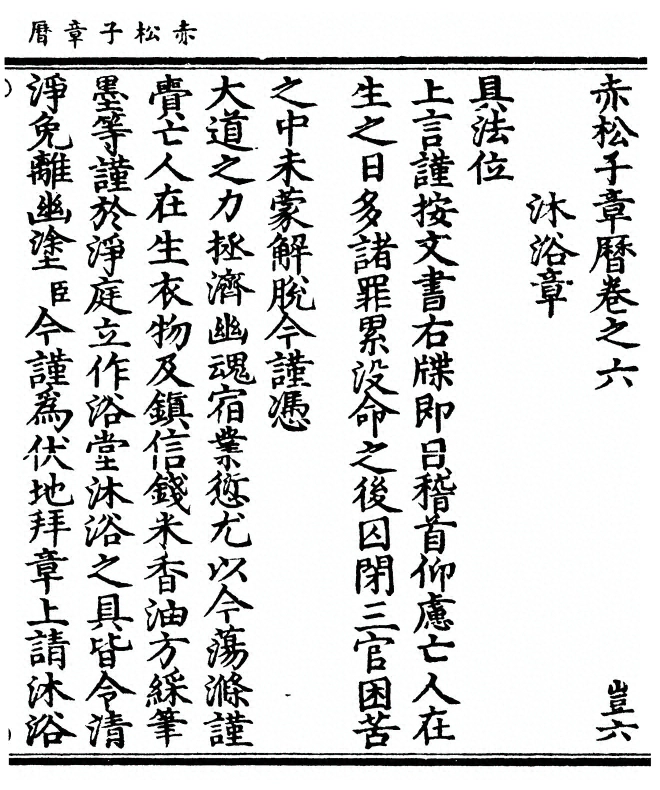 赤松子章曆
赤松子章曆卷之六 豈六
沐浴章
具法位
上言謹按文書右牒即日稽首仰慮亡人在
生之日多諸罪累没命之後囚閉三官困苦
之中未蒙解脫今謹憑
大道之力拯濟幽魂宿業愆尤以今蕩滌謹
賷亡人在生衣物及鎮信錢米香油方綵筆
墨等謹於淨庭立作浴堂沐浴之具皆令清
淨免離幽塗臣今謹為伏地拜章上請沐浴